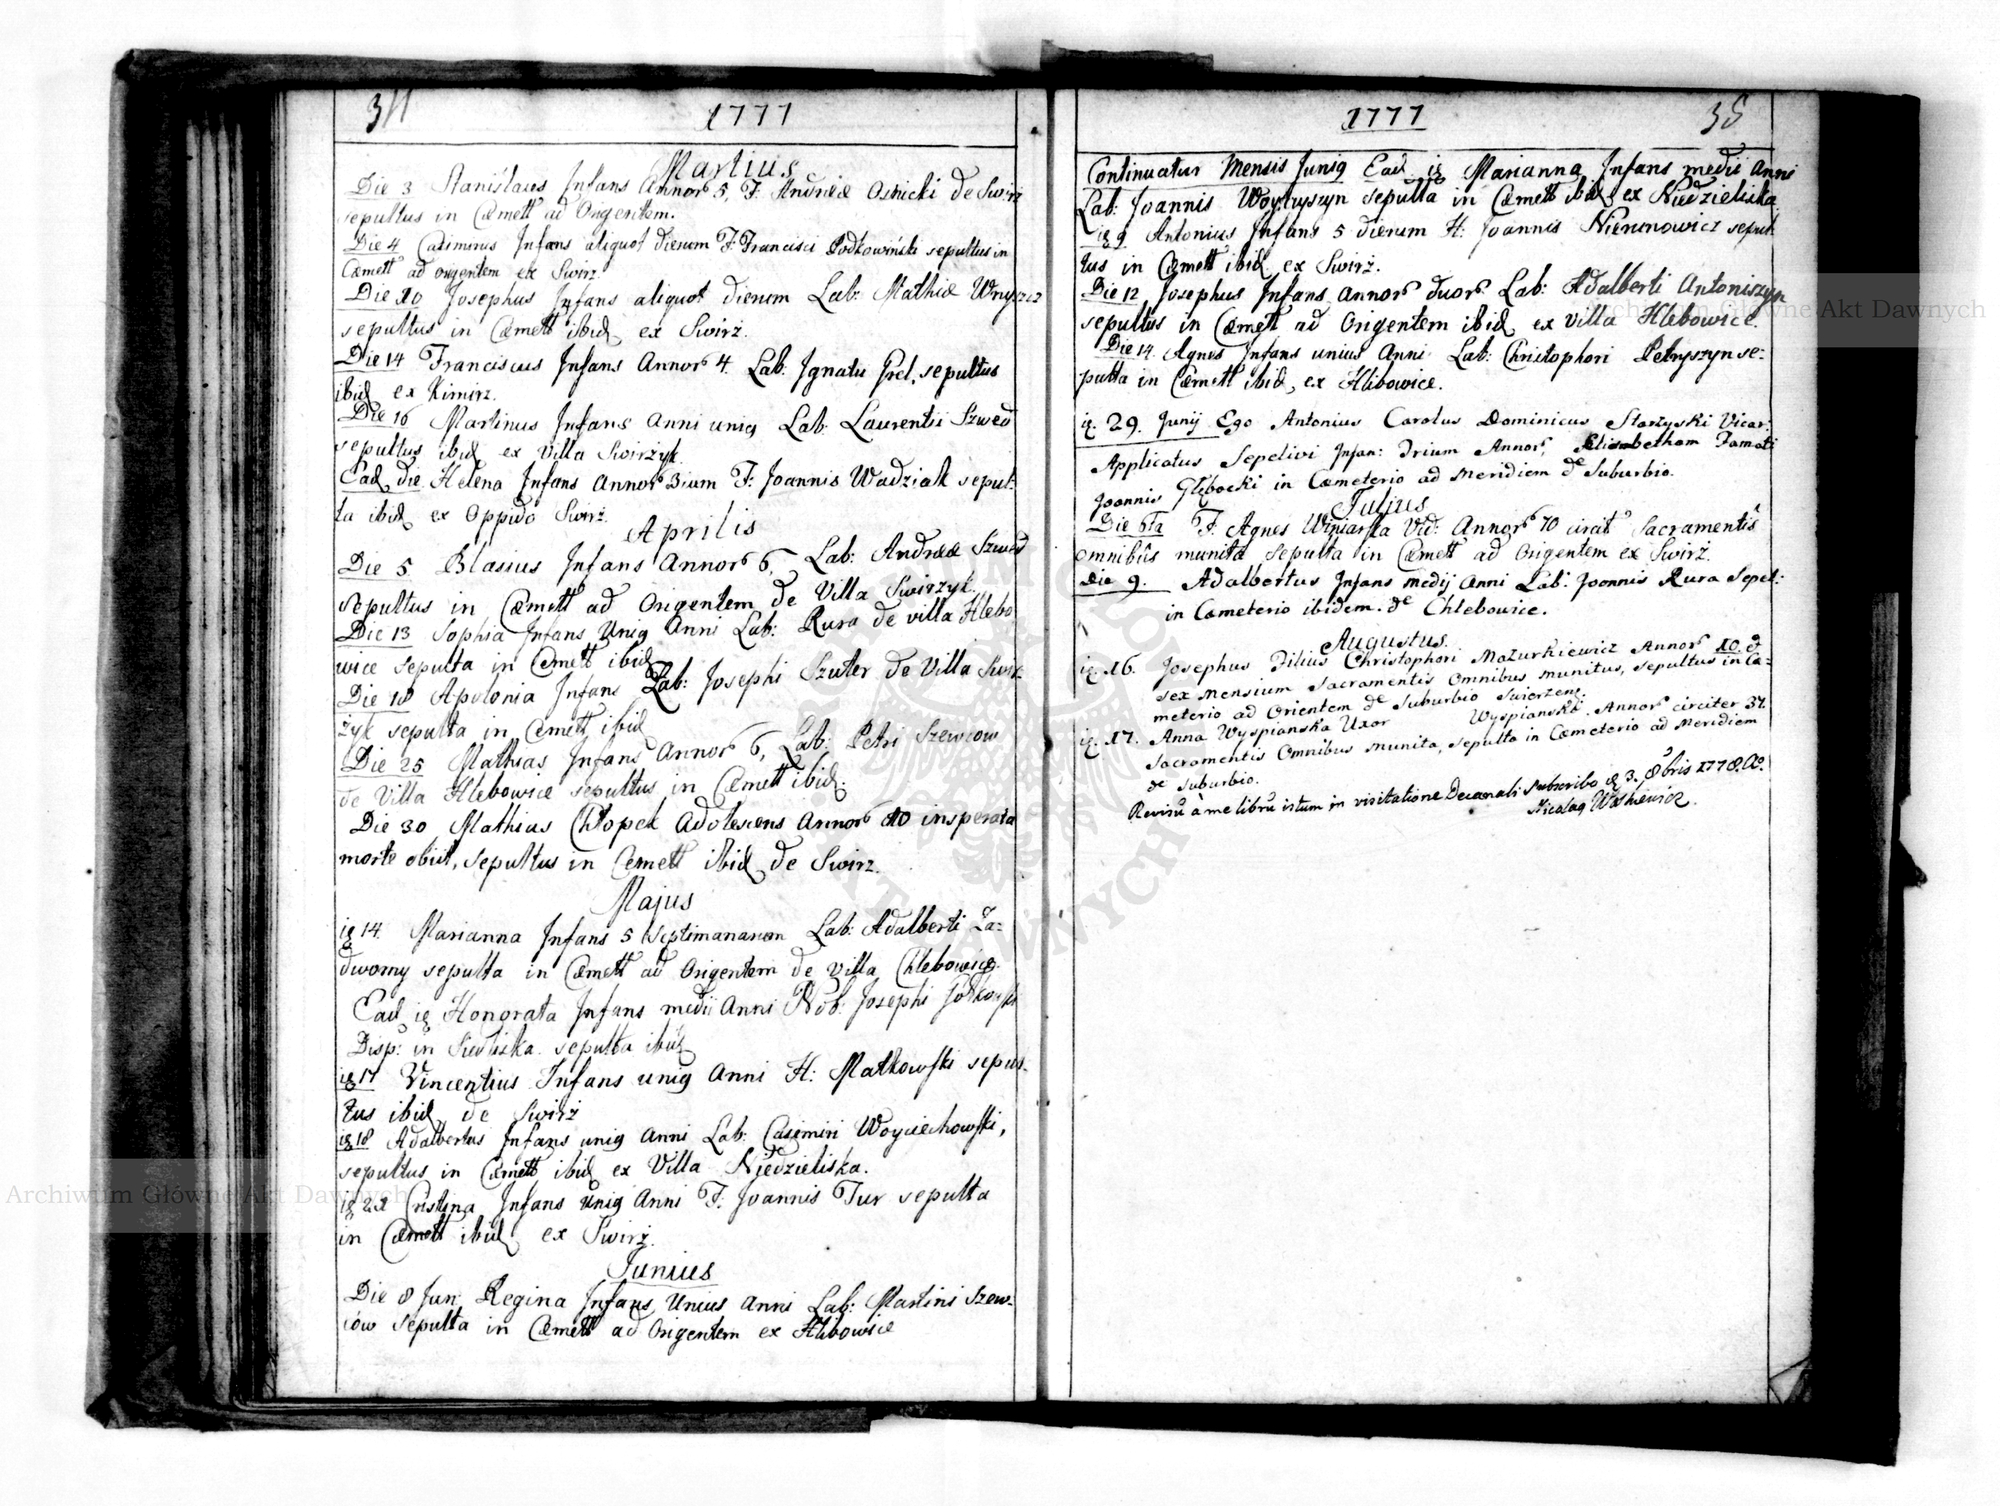 34
1777
Martius
Die 3 Stanislaus Infans Annor 5, F. Andreæ Osnicki de Swirz
sepultus in Cœmett ad Origentem.
Die 4 Casimirus Infans aliquot dierum F. Francisci Podkowiński sepultus in
Cœmett ad origentem ex Swirz.
Die 10 Josephus Infans aliquot dierum Lab: Mathiæ
sepultus in Cœmett ibid ex Swirz.
Die 14 Franciscus Infans Annor 4. Lab: Ignatii Grel, sepultus
ibid ex Kimirz.
Die 16 Martinus Infans Anni unig Lab: Laurentii Szwed
sepultus ibid ex Villa Swirzyk.
Ead die Helena Infans Annor 3ium F: Joannis Wadziak sepul:
ta ibid ex Oppido Swirz.
Aprilis
Die 5 Blasius Infans Annor 6, Lab: Andreæ Szwed
sepultus in Cœmett ad Origentem de Villa Swirzyk.
Die 13 Sophia Infans Unig Anni Lab: Rura de villa Hlebo
wice sepulta in Cœmett ibid
Die 18 Apolonia Infans Lab: Josephi Szuter de Villa Swir
żyk sepulta in Cœmett ibid
Die 25 Mathias Infans Annor 6, Lab: Petri Szewcow
de Villa Hlebowice sepultus in Cœmett ibid.
Die 30 Mathias Chłopek Adolescens Annor 10 insperata
morte obiit, sepultus in Cœmett ibid de Swirz.
Majus
ig 14. Marianna Infans 5 septimanarum Lab: Adalberti Za=
dworny sepulta in Cœmett ad Origentem de Villa Chlebowice.
Ead ig Honorata Infans medii Anni Nob: Josephi
Disp: in Siedliska. sepulta ibid
ig 17 Vincentius Infans unig Anni H: Małkowski sepul.
tus ibid de Swirż
ig 18 Adalbertus Infans unig Anni Lab: Casimiri Woyciechowski,
sepultus in Cœmett ibid ex Villa Niedzieliska.
ig 22 Cristina Infans unig Anni F. Joannis Tur sepulta
in Cœmett ibid ex Swirż.
Junius
Die 8 Jun: Regina Infans Unius Anni Lab: Martini Szew-
iów sepulta in Cœmett ad Origentem ex Hlibowice
1777
35
Continuatur Mensis Junig Ead. ig Marianna Infans medii Anni
Lab: Joannis Woytryszyn sepulta in Cœmett ibid ex Niedzieliska.
ig 9 Antonius Infans 5 dierum H: Joannis sepul:
tus in Cœmett ibid ex Swirż.
Die 12 Josephus Infans Annor duor Lab: Adalberti Antoniszyn
sepultus in Cœmett ad Origentem ibid ex Villa Hlebowice.
Die 14. Agnes Infans unius Anni Lab: Christophori Petryszyn se=
pulta in Cœmett ibid, ex Hlibowice.
ig. 29. Junij Ego Antonius Carolus Dominicus Starzyski Vicar:
Applicatus Sepelivi Infan: trium Annor, Elisabetham Famati
Joannis Głębocki in Cœmeterio ad Meridiem de Suburbio.
Julius
Die 6ta F. Agnes Winiarska Vid: Annor 70 circit Sacramentis
omnibus munita, sepulta in Cœmett ad Origentem ex Swirż.
Die 9. Adalbertus Infans medij Anni Lab: Joannis Rura Sepel:
in Cœmeterio ibidem. de Chlebowice.
Augustus.
ig. 16. Josephus Filius Christophori Mazurkiewicz Annor 10. &
sex Mensium Sacramentis Omnibus munitus, sepultus in Cœ=
meterio ad Orientem de Suburbio Swierzens.
ig. 17. Anna Wyspianska Uxor Wyspianski. Annor circiter 37.
Sacramentis Omnibus munita, sepulta in Cœmeterio ad Meridiem
de Suburbio.
Revisũ à me librũ istum in visitatione Decanali subscribo ig 3. 8bris 1778. Ao.
Nicolag
Archiwum Główne Akt Dawnych
Archiwum Główne Akt Dawnych